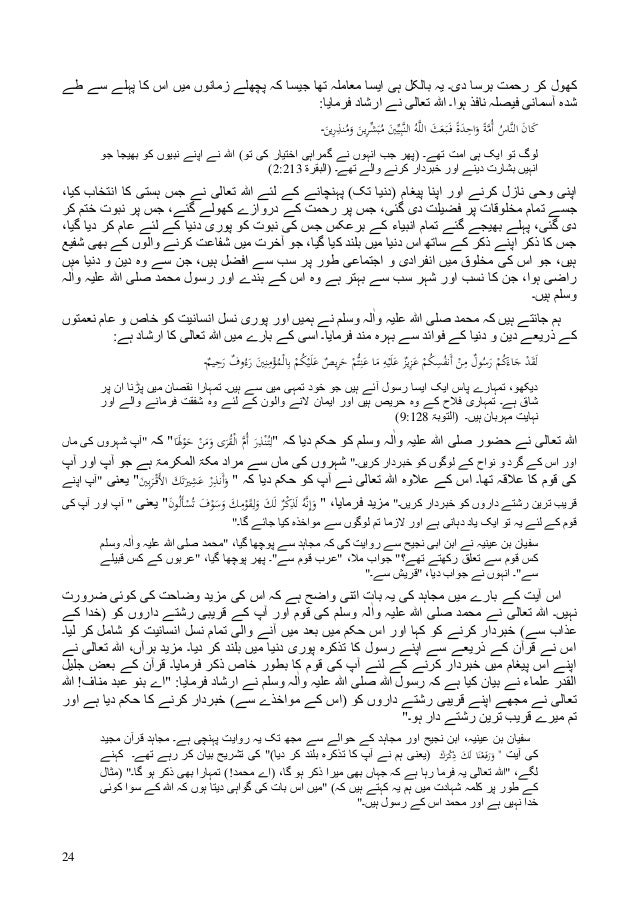 کھول کر رحمت برسا دی۔ یہ بالکل ہی ایسا معاملہ تھا جیسا کہ پچھلے زمانوں میں اس کا پہلے سے طے
شدہ آسمانی فیصلہ نافذ ہوا۔ اللہ تعالی نے ارشاد فرمایا:
كَانَ النَّاسُ أُمَّةً وَاحِدَةً فَبَعَثَ اللَّهُ النَّبِيِّينَ مُبَشِّرِينَ وَمُنذِرِينَ-
لوگ تو ایک ہی امت تھے۔ (پھر جب انہوں نے گمراہی اختیار کی تو) اللہ نے اپنے نبیوں کو بھیجا جو
انہیں بشارت دینے اور خبردار کرنے والے تھے۔ (البقرۃ 2:213)
اپنی وحی نازل کرنے اور اپنا پیغام (دنیا تک) پہنچانے کے لئے اللہ تعالی نے جس ہستی کا انتخاب کیا،
جسے تمام مخلوقات پر فضیلت دی گئی، جس پر رحمت کے دروازے کھولے گئے، جس پر نبوت ختم کر
دی گئی، پہلے بھیجے گئے تمام انبیاء کے برعکس جس کی نبوت کو پوری دنیا کے لئے عام کر دیا گیا،
جس کا ذکر اپنے ذکر کے ساتھ اس دنیا میں بلند کیا گیا، جو آخرت میں شفاعت کرنے والوں کے بھی شفیع
ہیں، جو اس کی مخلوق میں انفرادی و اجتماعی طور پر سب سے افضل ہیں، جن سے وہ دین و دنیا میں
راضی ہوا، جن کا نسب اور شہر سب سے بہتر ہے وہ اس کے بندے اور رسول محمد صلی اللہ علیہ والٰہ
وسلم ہیں۔
ہم جانتے ہیں کہ محمد صلی اللہ علیہ والٰہ وسلم نے ہمیں اور پوری نسل انسانیت کو خاص و عام نعمتوں
کے ذریعے دین و دنیا کے فوائد سے بہرہ مند فرمایا۔ اسی کے بارے میں اللہ تعالی کا ارشاد ہے:
لَقَدْ جَاءَكُمْ رَسُولٌ مِنْ أَنفُسِكُمْ عَزِيزٌ عَلَيْهِ مَا عَنِتُّمْ حَرِيصٌ عَلَيْكُمْ بِالْمُؤْمِنِينَ رَءُوفٌ رَحِيمٌ-
دیکھو، تمہارے پاس ایک ایسا رسول آئے ہیں جو خود تمہی میں سے ہیں۔ تمہارا نقصان میں پڑنا ان پر
شاق ہے۔ تمہاری فلاح کے وہ حریص ہیں اور ایمان لانے والون کے لئے وہ شفقت فرمانے والے اور
نہایت مہربان ہیں۔ (التوبۃ 9:128)
اللہ تعالی نے حضور صلی اللہ علیہ والٰہ وسلم کو حکم دیا کہ "لِتُنْذِرَ أُمَّ الْقُرَى وَمَنْ حَوْلَهَا" کہ "آپ شہروں کی ماں
اور اس کے گرد و نواح کے لوگوں کو خبردار کریں۔" شہروں کی ماں سے مراد مکۃ المکرمۃ ہے جو آپ اور آپ
کی قوم کا علاقہ تھا۔ اس کے علاوہ اللہ تعالی نے آپ کو حکم دیا کہ " وَأَنذِرْ عَشِيرَتَكَ الأَقْرَبِينَ" یعنی "آپ اپنے
قریب ترین رشتے داروں کو خبردار کریں۔" مزید فرمایا، " وَإِنَّهُ لَذِكْرٌ لَكَ وَلِقَوْمِكَ وَسَوْفَ تُسْأَلُونَ" یعنی " آپ اور آپ کی
قوم کے لئے یہ تو ایک یاد دہانی ہے اور لازما تم لوگوں سے مواخذہ کیا جائے گا۔"
سفیان بن عینیہ نے ابن ابی نجیح سے روایت کی کہ مجاہد سے پوچھا گیا، "محمد صلی اللہ علیہ والٰہ وسلم
کس قوم سے تعلق رکھتے تھے؟" جواب ملا، "عرب قوم سے"۔ پھر پوچھا گیا، "عربوں کے کس قبیلے
سے"۔ انہوں نے جواب دیا، "قریش سے۔"
اس آیت کے بارے میں مجاہد کی یہ بات اتنی واضح ہے کہ اس کی مزید وضاحت کی کوئی ضرورت
نہیں۔ اللہ تعالی نے محمد صلی اللہ علیہ والٰہ وسلم کی قوم اور آپ کے قریبی رشتے داروں کو (خدا کے
عذاب سے) خبردار کرنے کو کہا اور اس حکم میں بعد میں آنے والی تمام نسل انسانیت کو شامل کر لیا۔
اس نے قرآن کے ذریعے سے اپنے رسول کا تذکرہ پوری دنیا میں بلند کر دیا۔ مزید برآں، اللہ تعالی نے
اپنے اس پیغام میں خبردار کرنے کے لئے آپ کی قوم کا بطور خاص ذکر فرمایا۔ قرآن کے بعض جلیل
القدر علماء نے بیان کیا ہے کہ رسول اللہ صلی اللہ علیہ والٰہ وسلم نے ارشاد فرمایا: "اے بنو عبد مناف! اللہ
تعالی نے مجھے اپنے قریبی رشتے داروں کو (اس کے مواخذے سے) خبردار کرنے کا حکم دیا ہے اور
تم میرے قریب ترین رشتے دار ہو۔"
سفیان بن عینیہ، ابن نجیح اور مجاہد کے حوالے سے مجھ تک یہ روایت پہنچی ہے۔ مجاہد قرآن مجید
کی آیت " وَرَفَعْنَا لَكَ ذِكْرَكَ (یعنی ہم نے آپ کا تذکرہ بلند کر دیا)" کی تشریح بیان کر رہے تھے۔ کہنے
لگے، "اللہ تعالی یہ فرما رہا ہے کہ جہاں بھی میرا ذکر ہو گا، (اے محمد!) تمہارا بھی ذکر ہو گا۔" (مثال
کے طور پر کلمہ شہادت میں ہم یہ کہتے ہیں کہ) "میں اس بات کی گواہی دیتا ہوں کہ اللہ کے سوا کوئی
خدا نہیں ہے اور محمد اس کے رسول ہیں۔"
24